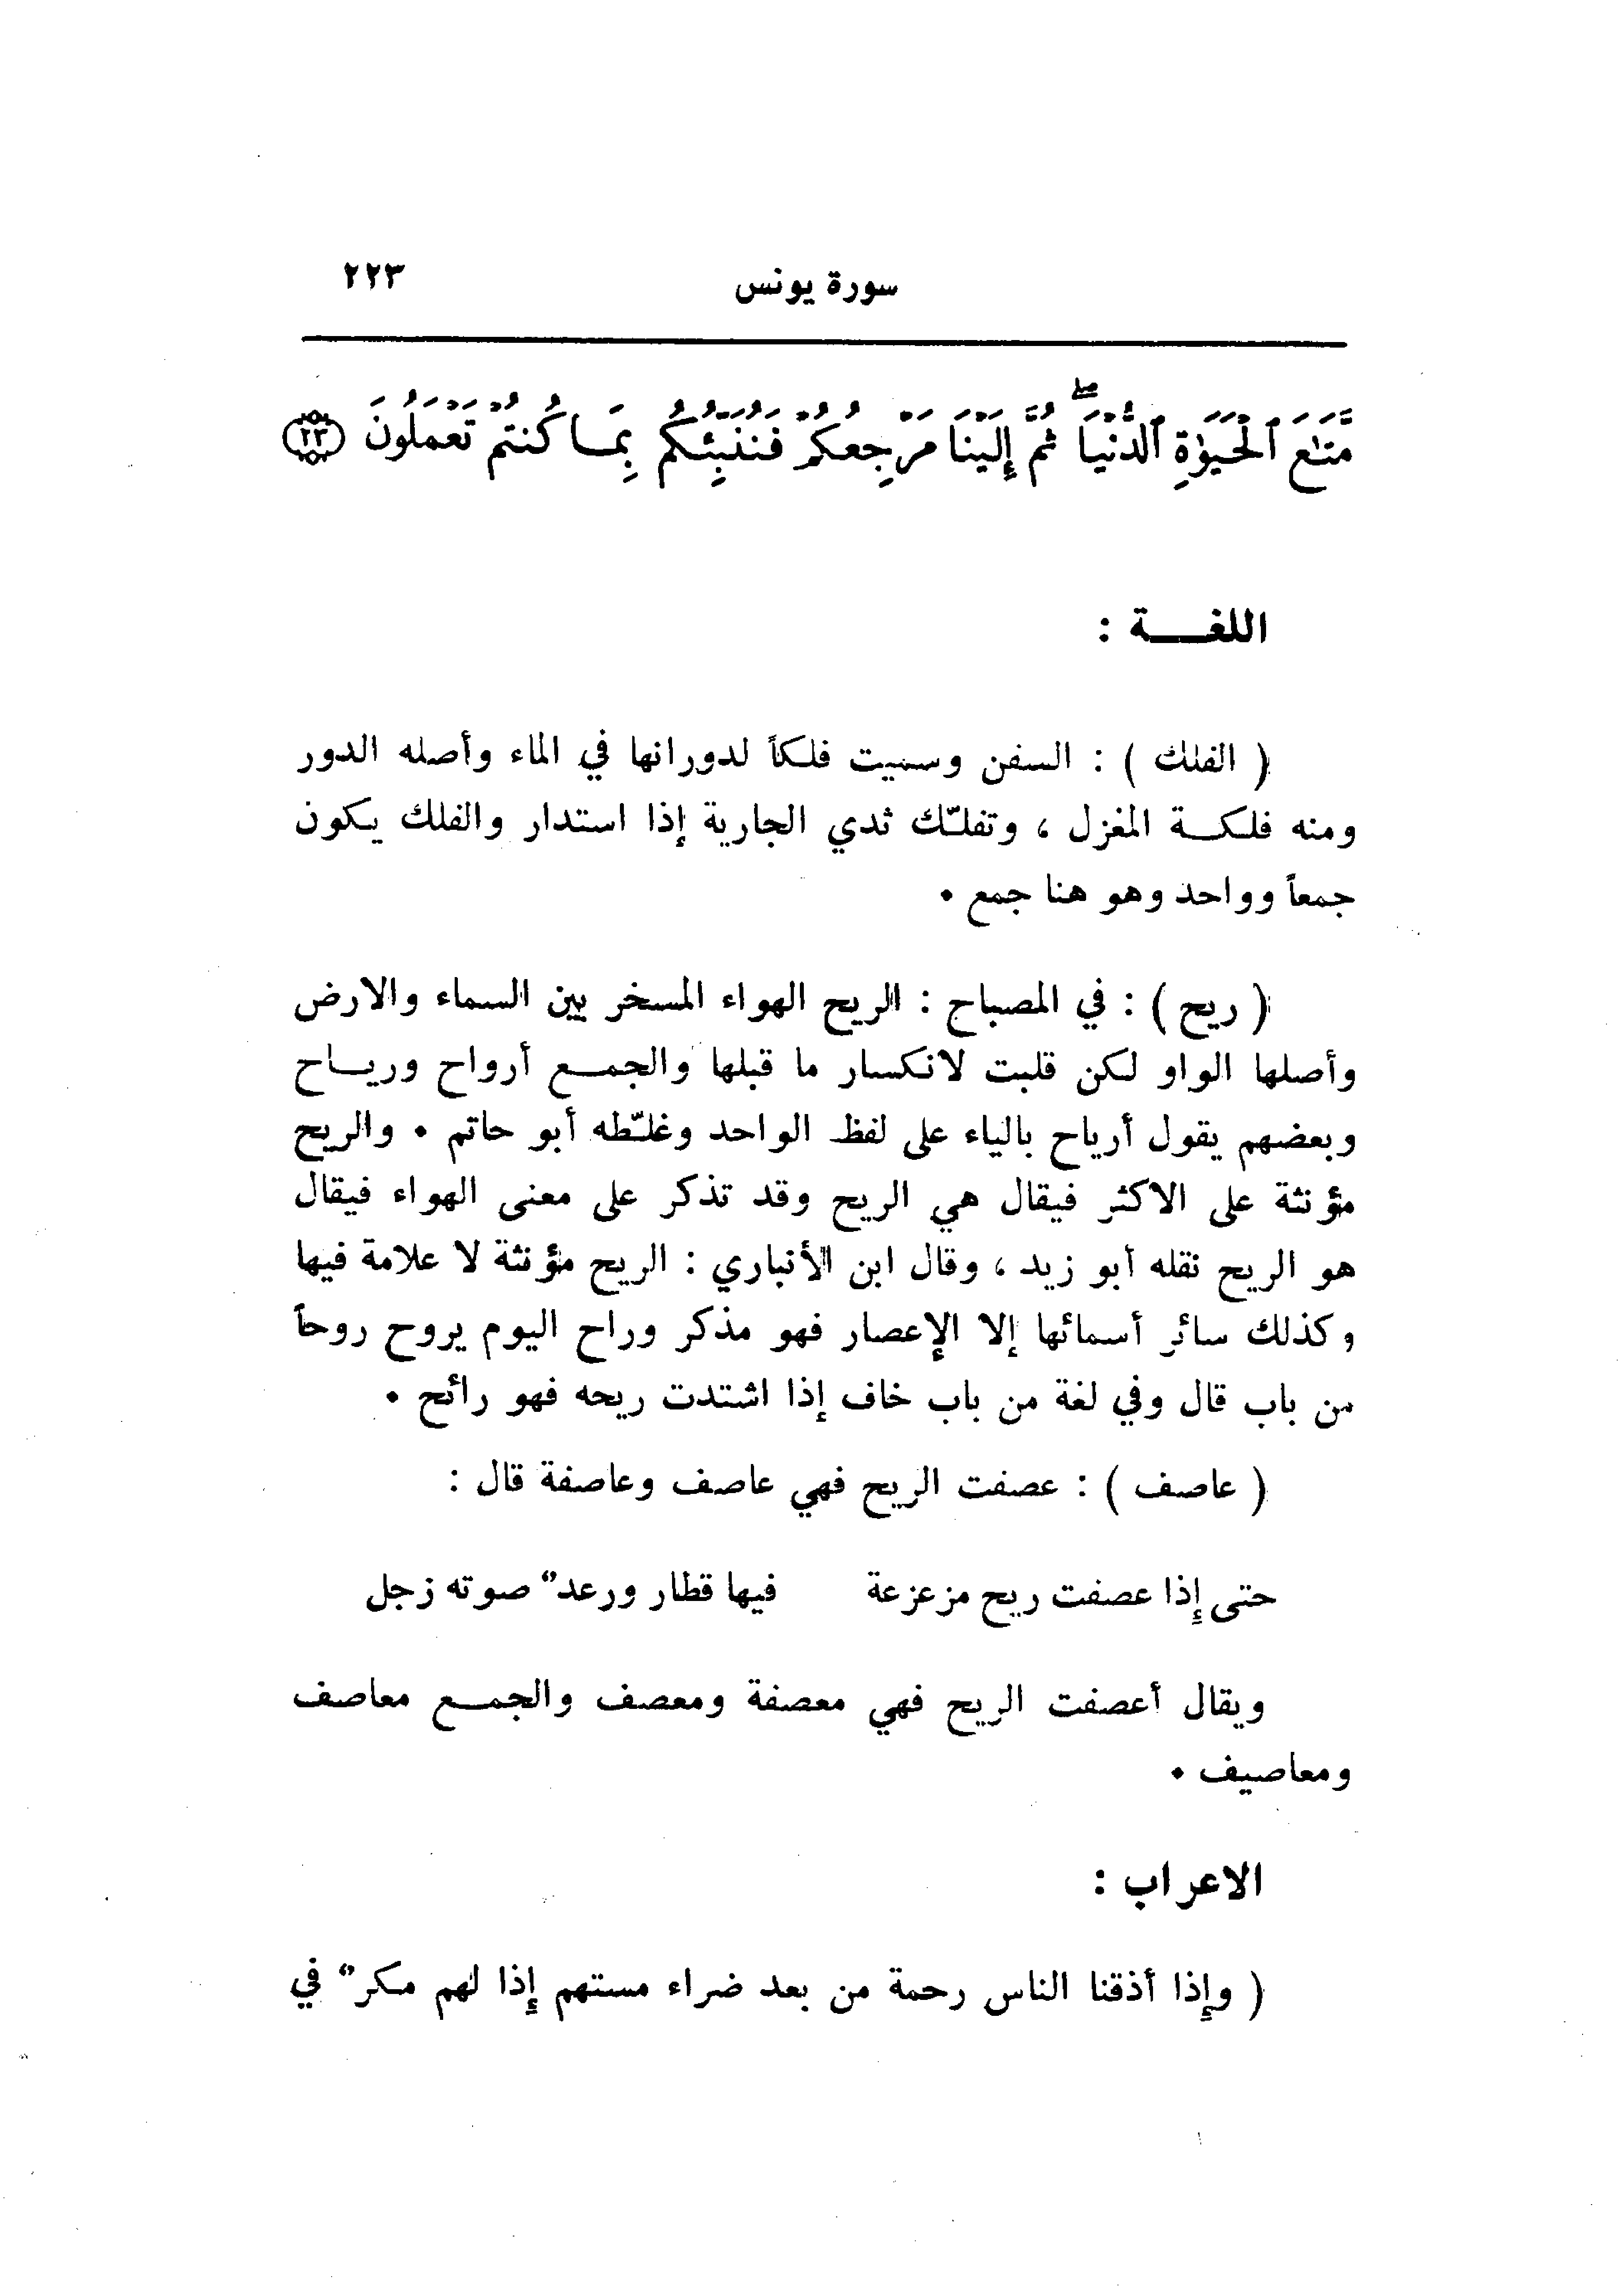 سورة يونس ٢٢٣
مَّتَـٰعَ ٱلْحَيَوٰةِ ٱلدُّنْيَا ۖ ثُمَّ إِلَيْنَا مَرْجِعُكُمْ فَنُنَبِّئُكُم بِمَا كُنتُمْ تَعْمَلُونَ ﴿٢٣﴾
اللغـــة :
( الفلك ) : السفن وسميت فلكاً لدورانها في الماء وأصله الدور
ومنه فلكـــة المغزل ، وتفلّك ثدي الجارية إذا استدار والفلك يكون
جمعاً وواحد وهو هنا جمع .
( ريح ) : في المصباح : الريح الهواء المسخر بين السماء والارض
وأصلها الواو لكن قلبت لانكسار ما قبلها والجمـــع أرواح وريـــاح
وبعضهم يقول أرياح بالياء على لفظ الواحد وغلّطه أبو حاتم . والريح
مؤنثة على الاكثر فيقال هي الريح وقد تذكر على معنى الهواء فيقال
هو الريح نقله أبو زيد ، وقال ابن الأنباري : الريح مؤنثة لا علامة فيها
وكذلك سائر أسمائها إلا الإعصار فهو مذكر وراح اليوم يروح روحاً
من باب قال وفي لغة من باب خاف إذا اشتدت ريحه فهو رائح .
( عاصف ) : عصفت الريح فهي عاصف وعاصفة قال :
حتى إذا عصفت ريح مزعزعة فيها قطار ورعدٌ صوته زجل
ويقال أعصفت الريح فهي معصفة ومعصف والجمـــع معاصف
ومعاصيف .
الاعراب :
( وإذا أذقنا الناس رحمة من بعد ضراء مستهم إذا لهم مكرٌ في